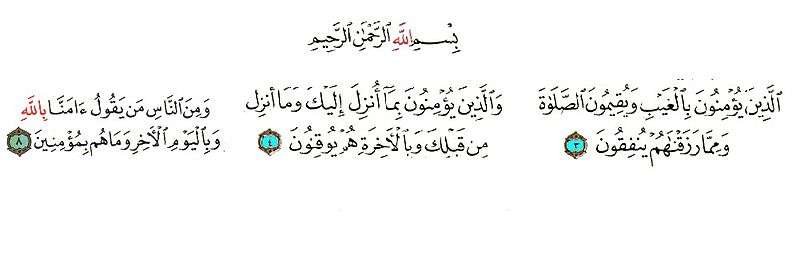 بِسْمِ ٱللَّهِ ٱلرَّحْمَٰنِ ٱلرَّحِيمِ
ٱلَّذِينَ يُؤْمِنُونَ بِٱلْغَيْبِ وَيُقِيمُونَ ٱلصَّلَوٰةَ
وَمِمَّا رَزَقْنَٰهُمْ يُنفِقُونَ ٣
وَٱلَّذِينَ يُؤْمِنُونَ بِمَآ أُنزِلَ إِلَيْكَ وَمَآ أُنزِلَ
مِن قَبْلِكَ وَبِٱلْأَخِرَةِ هُمْ يُوقِنُونَ ٤
وَمِنَ ٱلنَّاسِ مَن يَقُولُ ءَامَنَّا بِٱللَّهِ
وَبِٱلْيَوْمِ ٱلْأَخِرِ وَمَا هُم بِمُؤْمِنِينَ ٨